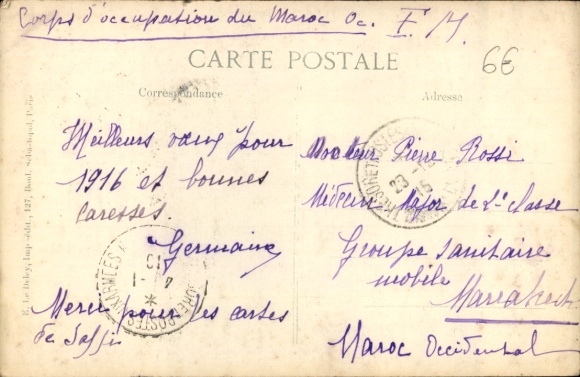 Corps d'occupation du Maroc Oc. F. M.
6€
CARTE POSTALE
Correspondance
Adresse
Meilleurs vœux pour
1916 et bonnes
caresses.
Germaine
Merci pour les cartes
de Saffi
Docteur Pierre Rossi
Médecin Major de 2e classe
Groupe sanitaire
mobile
Marrakech
Maroc Occidental
E. Le Deley, Imp.-édit., 127, Boul. Sébastopol, Paris
TRESOR ET POSTES AUX ARMEES
TRESOR ET POSTES
23